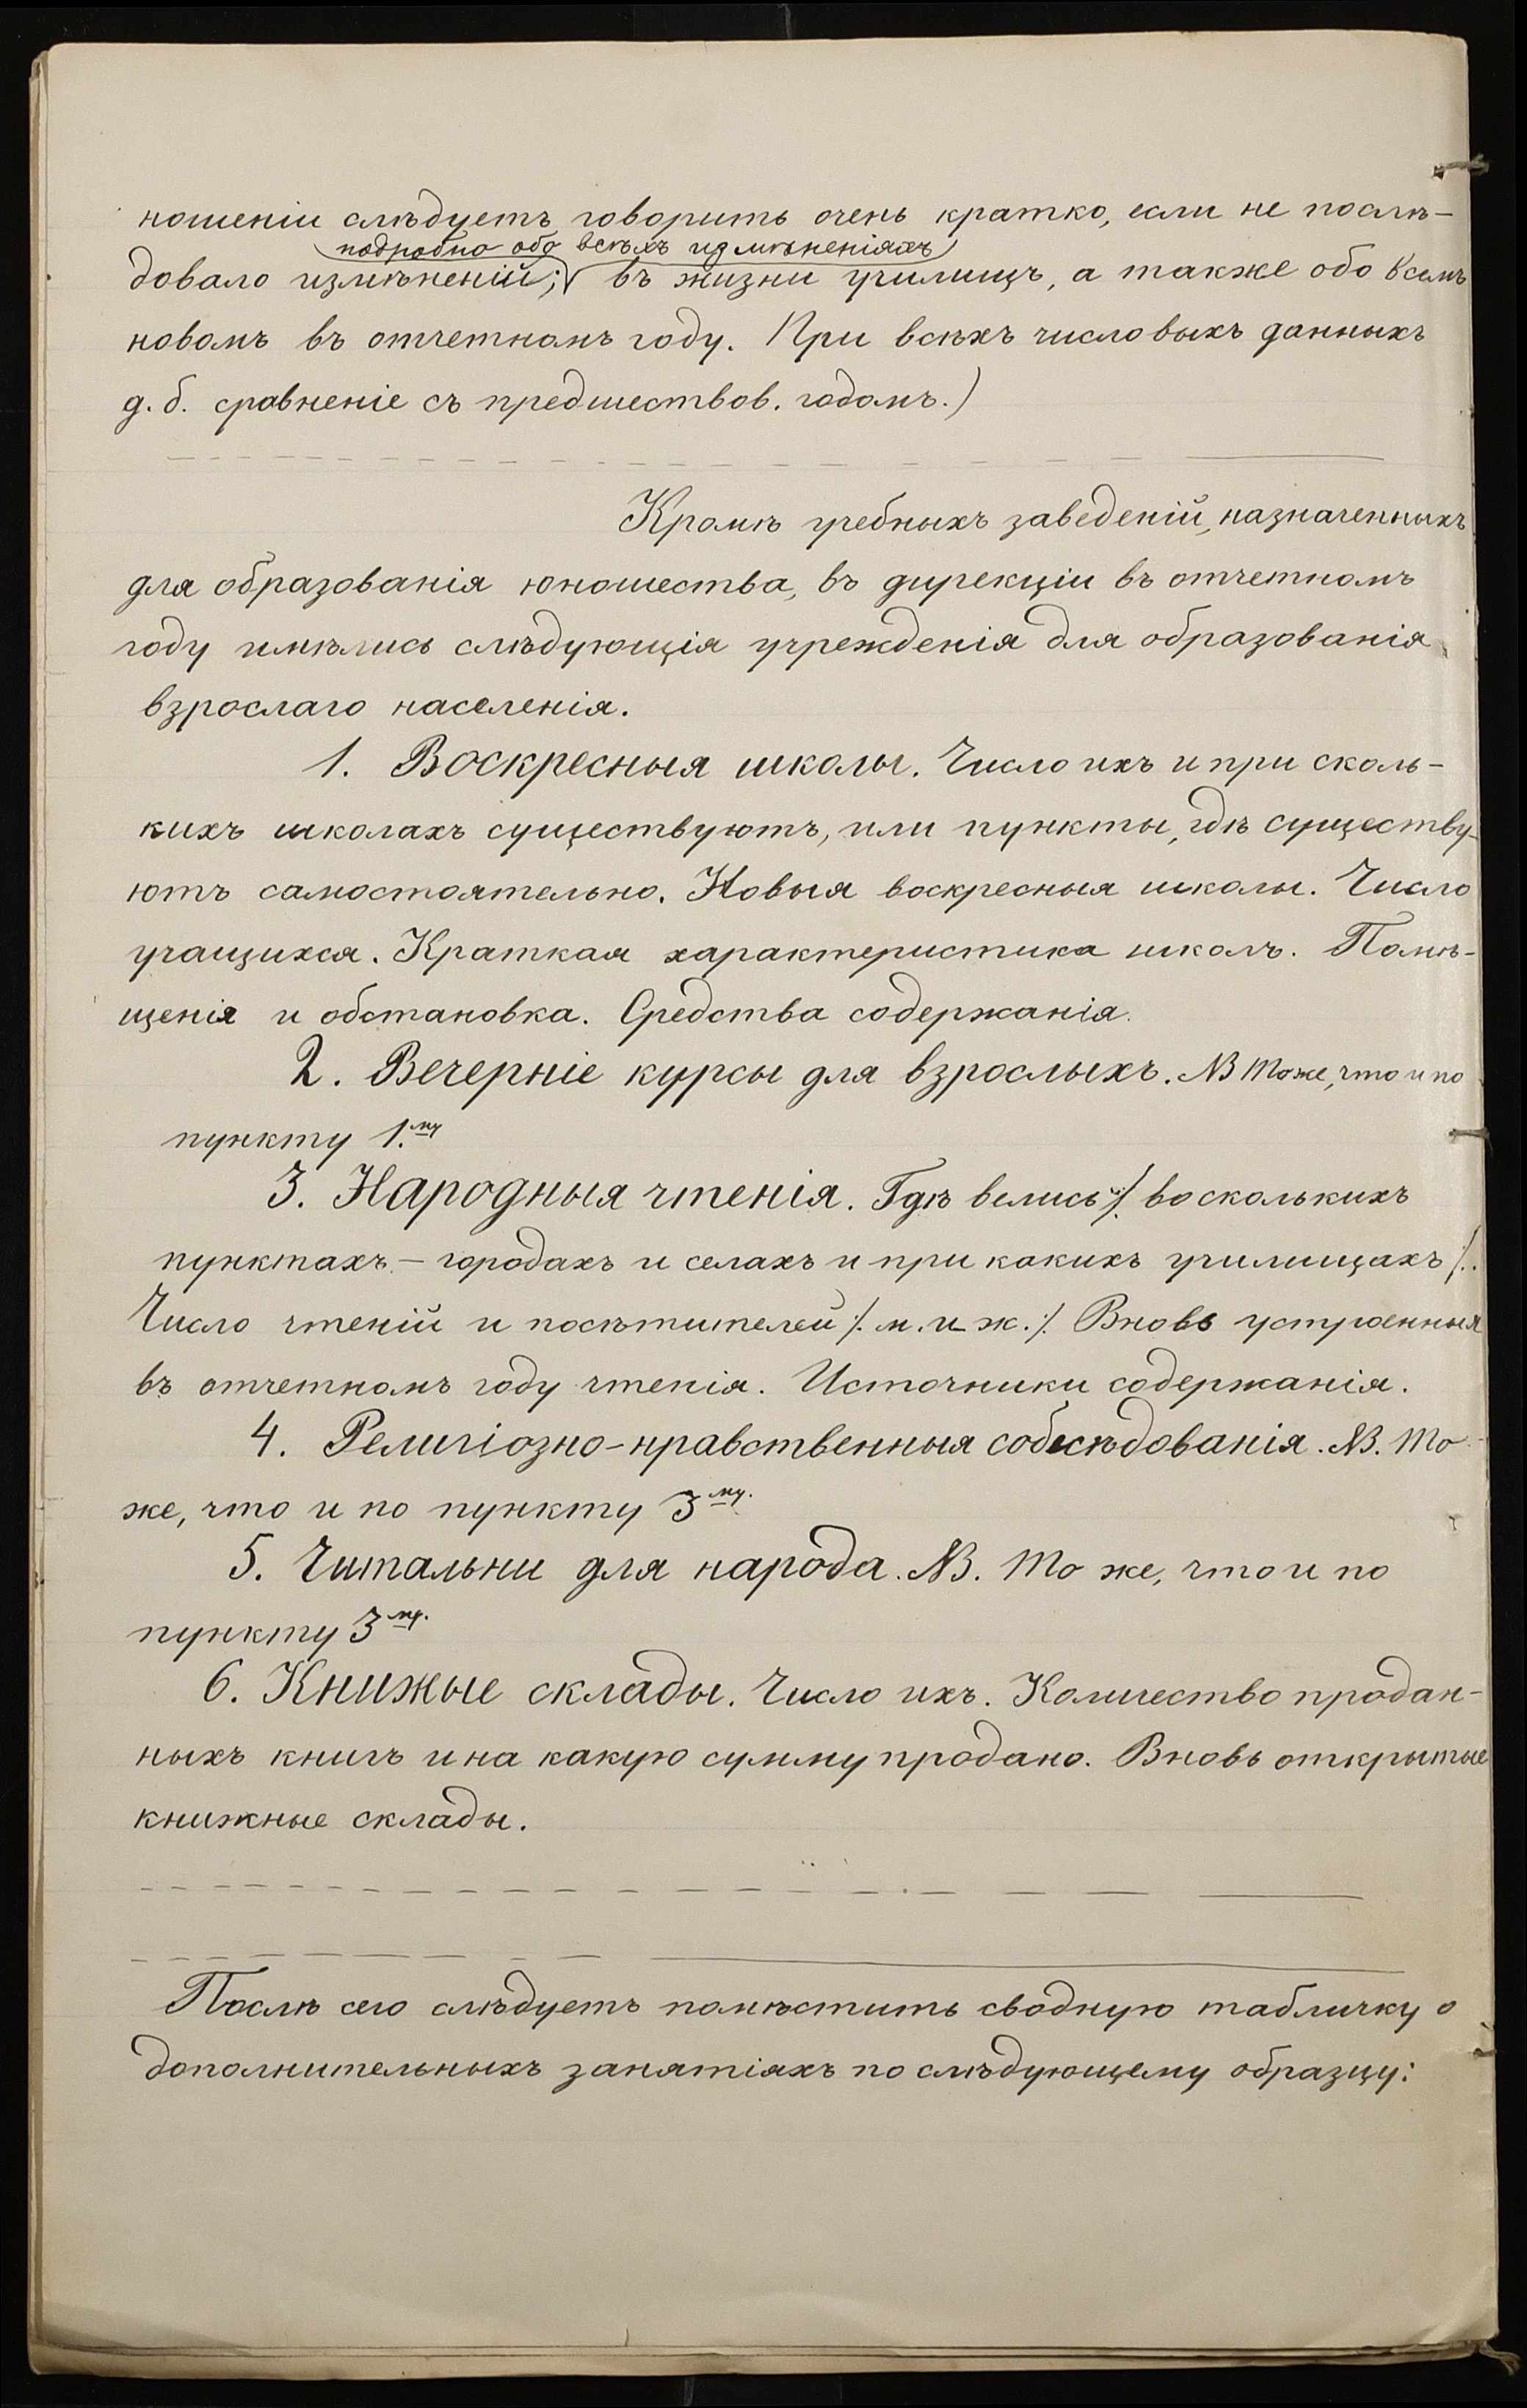 ношеніи слѣдуетъ говорить очень кратко, если не послѣ-
подробно обо всѣхъ измѣненіяхъ
довало измѣненій; въ жизни училищъ, а также обо всемъ
новомъ въ отчетномъ году. При всѣхъ числовыхъ данныхъ
д. б. сравненіе съ предшествов. годомъ.)
Кромѣ учебныхъ заведеній, назначенныхъ
для образованія юношества, въ дирекціи въ отчетномъ
году имѣлись слѣдующія учрежденія для образованія
взрослаго населенія.
1. Воскресныя школы. Число ихъ и при сколь-
кихъ школахъ существуютъ, или пункты, гдѣ существу-
ютъ самостоятельно. Новыя воскресныя школы. Число
учащихся. Краткая характеристика школъ. Помѣ-
щенія и обстановка. Средства содержанія.
2. Вечерніе курсы для взрослыхъ. NB То же, что и по
пункту 1.му
3. Народныя чтенія. Гдѣ велись /. во сколькихъ
пунктахъ – городахъ и селахъ и при какихъ училищахъ /.
Число чтеній и посѣтителей /. м. и ж. /. Вновь устроенныя
въ отчетномъ году чтенія. Источники содержанія.
4. Религіозно-нравственныя собесѣдованія. NB. То
же, что и по пункту 3му.
5. Читальни для народа. NB. То же, что и по
пункту 3му.
6. Книжые склады. Число ихъ. Количество продан-
ныхъ книгъ и на какую сумму продано. Вновь открытые
книжные склады.
Послѣ сего слѣдуетъ помѣстить сводную табличку о
дополнительныхъ занятіяхъ по слѣдующему образцу: